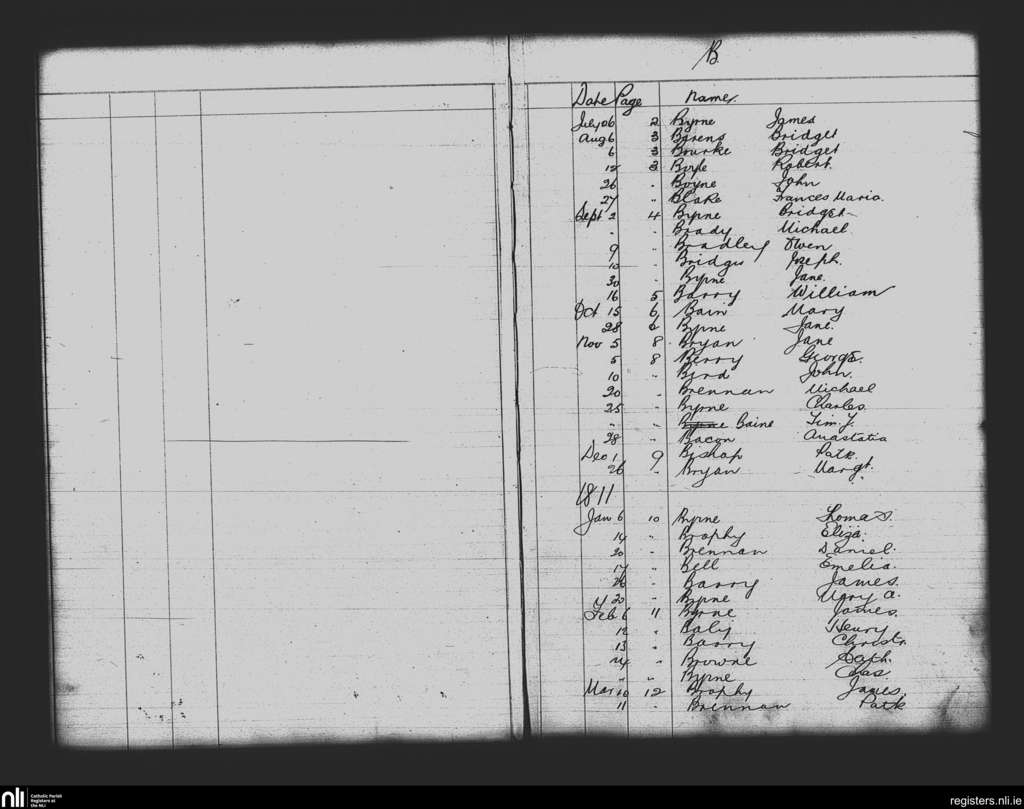 B
Date Page Name
July 26 2 Byrne James
Aug 6 3 Birens Bridget
6 3 Bourke Bridget
12 3 Boyle Robert
26 " Boyne John
27 " Blake Frances Maria
Sept 2 4 Byrne Bridget
" " Brady Michael
9 " Bradley Owen
10 " Bridges Joseph
30 " Byrne Jane
16 5 Barry William
Oct 15 6 Bain Mary
28 6 Byrne Jane
Nov 5 8 Bryan Jane
5 8 Berry George
10 " Bird John
20 " Brennan Michael
25 " Byrne Charles
" " Byrne Baine Tim J.
28 " Bacon Anastatia
Dec 1 9 Bishop Patk
26 " Bryan Margt.
1811
Jan 6 10 Byrne Thomas
14 " Brophy Eliza
20 " Brennan Daniel
17 " Bell Emelia
26 " Barry James
30 " Byrne Mary A.
Feb 6 11 Byrne James
12 " Baly Henry
13 " Barry Christr
24 " Browne Cath.
" " Byrne Chas.
Mar 10 12 Brophy James
11 " Brennan Patk
nli Catholic Parish
Registers at
the NLI
registers.nli.ie